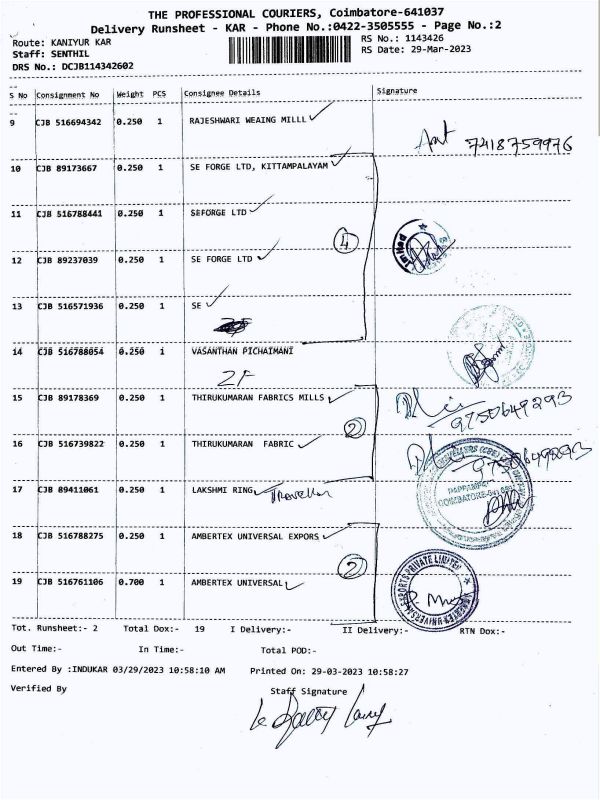 THE PROFESSIONAL COURIERS, Coimbatore-641037
Delivery Runsheet - KAR - Phone No.:0422-3505555 - Page No.:2
Route: KANIYUR KAR
RS No.: 1143426
Staff: SENTHIL
RS Date: 29-Mar-2023
DRS No.: DCJB114342602
S No Consignment No Weight PCS Consignee Details Signature
9 CJB 516694342 0.250 1 RAJESHWARI WEAING MILLL
7418759976
10 CJB 89173667 0.250 1 SE FORGE LTD, KITTAMPALAYAM
11 CJB 516788441 0.250 1 SEFORGE LTD
4
12 CJB 89237039 0.250 1 SE FORGE LTD
13 CJB 516571936 0.250 1 SE
14 CJB 516788054 0.250 1 VASANTHAN PICHAIMANI
15 CJB 89178369 0.250 1 THIRUKUMARAN FABRICS MILLS
9750649293
2
16 CJB 516739822 0.250 1 THIRUKUMARAN FABRIC
9750649293
17 CJB 89411061 0.250 1 LAKSHMI RING Traveller
COIMBATORE
18 CJB 516788275 0.250 1 AMBERTEX UNIVERSAL EXPORS
2
PRIVATE LIMITED
19 CJB 516761106 0.700 1 AMBERTEX UNIVERSAL
Tot. Runsheet:- 2 Total Dox:- 19 I Delivery:- II Delivery:- RTN Dox:-
Out Time:- In Time:- Total POD:-
Entered By :INDUKAR 03/29/2023 10:58:10 AM Printed On: 29-03-2023 10:58:27
Verified By Staff Signature